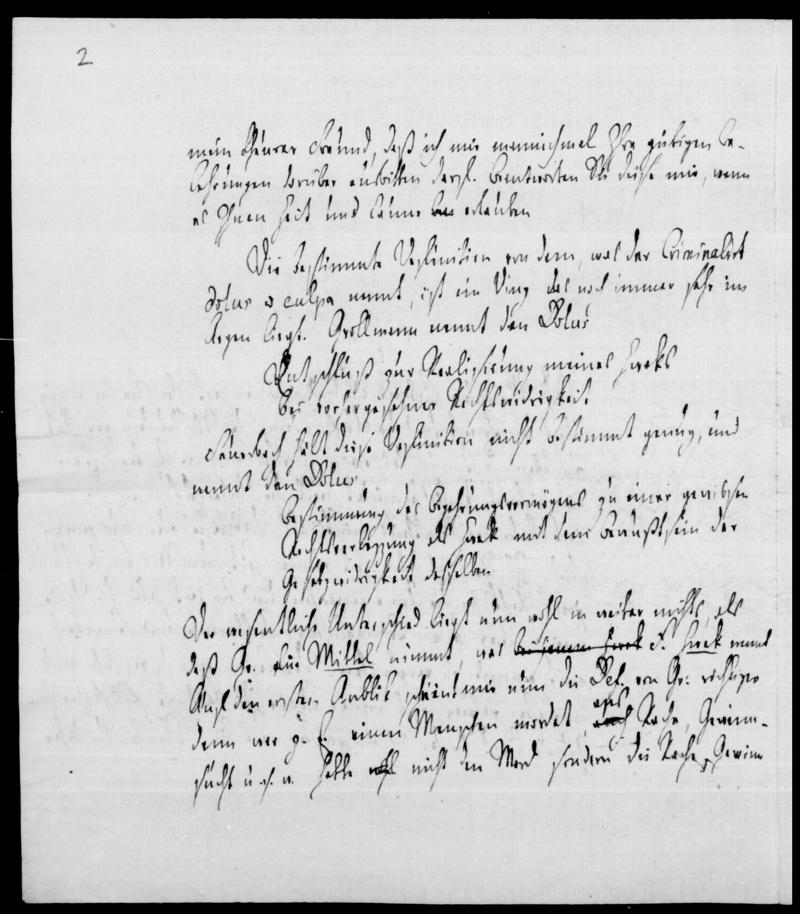 2
mein theurer Freund, daß ich mir mannichmal Ihre gütigen Be-
lehrungen darüber ausbitten darf. Beantworten Sie diese mir, wenn
es Ihnen Zeit und Laune erlauben
Die bestimmte Definition von dem, was der Criminalist
dolus & culpa nennt, ist ein Ding das noch immer sehr im
Argen liegt. Grollmann nennt den Dolus
Entschluß zur Realisirung meines Zweks
bei vorhergesehener Rechtswidrigkeit.
Feuerbach hält diese Definition nicht bestimmt genug, und
nennt den Dolus
Bestimmung des Begehrungsvermögens zu einer gewissen
Rechtsverletzung als Zwek mit dem Bewußtsein der
Gesetzwidrigkeit desselben
Der wesentliche Unterschied liegt nun wohl in weiter nichts, als
daß Gr. für Mittel nimmt, was F. Zwek nennt
Auf den ersten Anblik scheint mir nun die Def. von Gr: richtiger
denn wer z. E. einen Menschen mordet, aus Rache, Gewinn-
sucht u. s. w. hatte nicht den Mord sondern die Rache, Gewinn